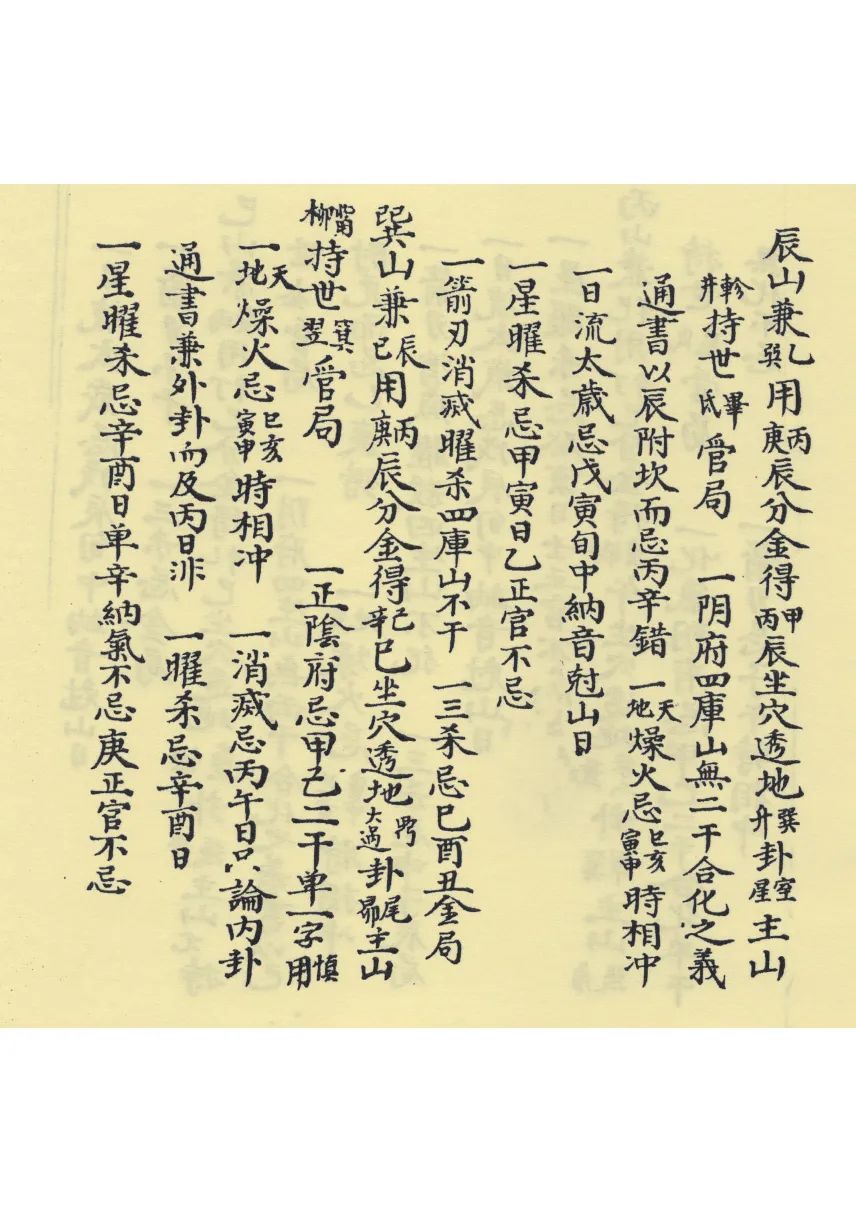 辰山兼乙巽用丙庚辰分金得甲丙辰坐穴透地巽升卦室星主山
軫井持世畢氐管局　一阴府四庫山無二干合化之義
通書以辰附坎而忌丙辛錯　一天地燥火忌巳亥寅申時相冲
一日流太歳忌戊寅旬中納音尅山日
一星曜杀忌甲寅日乙正官不忌
一箭刃消滅曜杀四庫山不干　一三杀忌巳酉丑金局
巽山兼辰巳用丙庚辰分金得己辛巳坐穴透地大過卦尾昴主山
觜柳持世箕翌管局　一正陰府忌甲己二干单一字慎用
一天地燥火忌巳亥寅申時相冲　一消滅忌丙午日只論内卦
通書兼外卦而及丙日非　一曜杀忌辛酉日
一星曜杀忌辛酉日单辛納氣不忌庚正官不忌